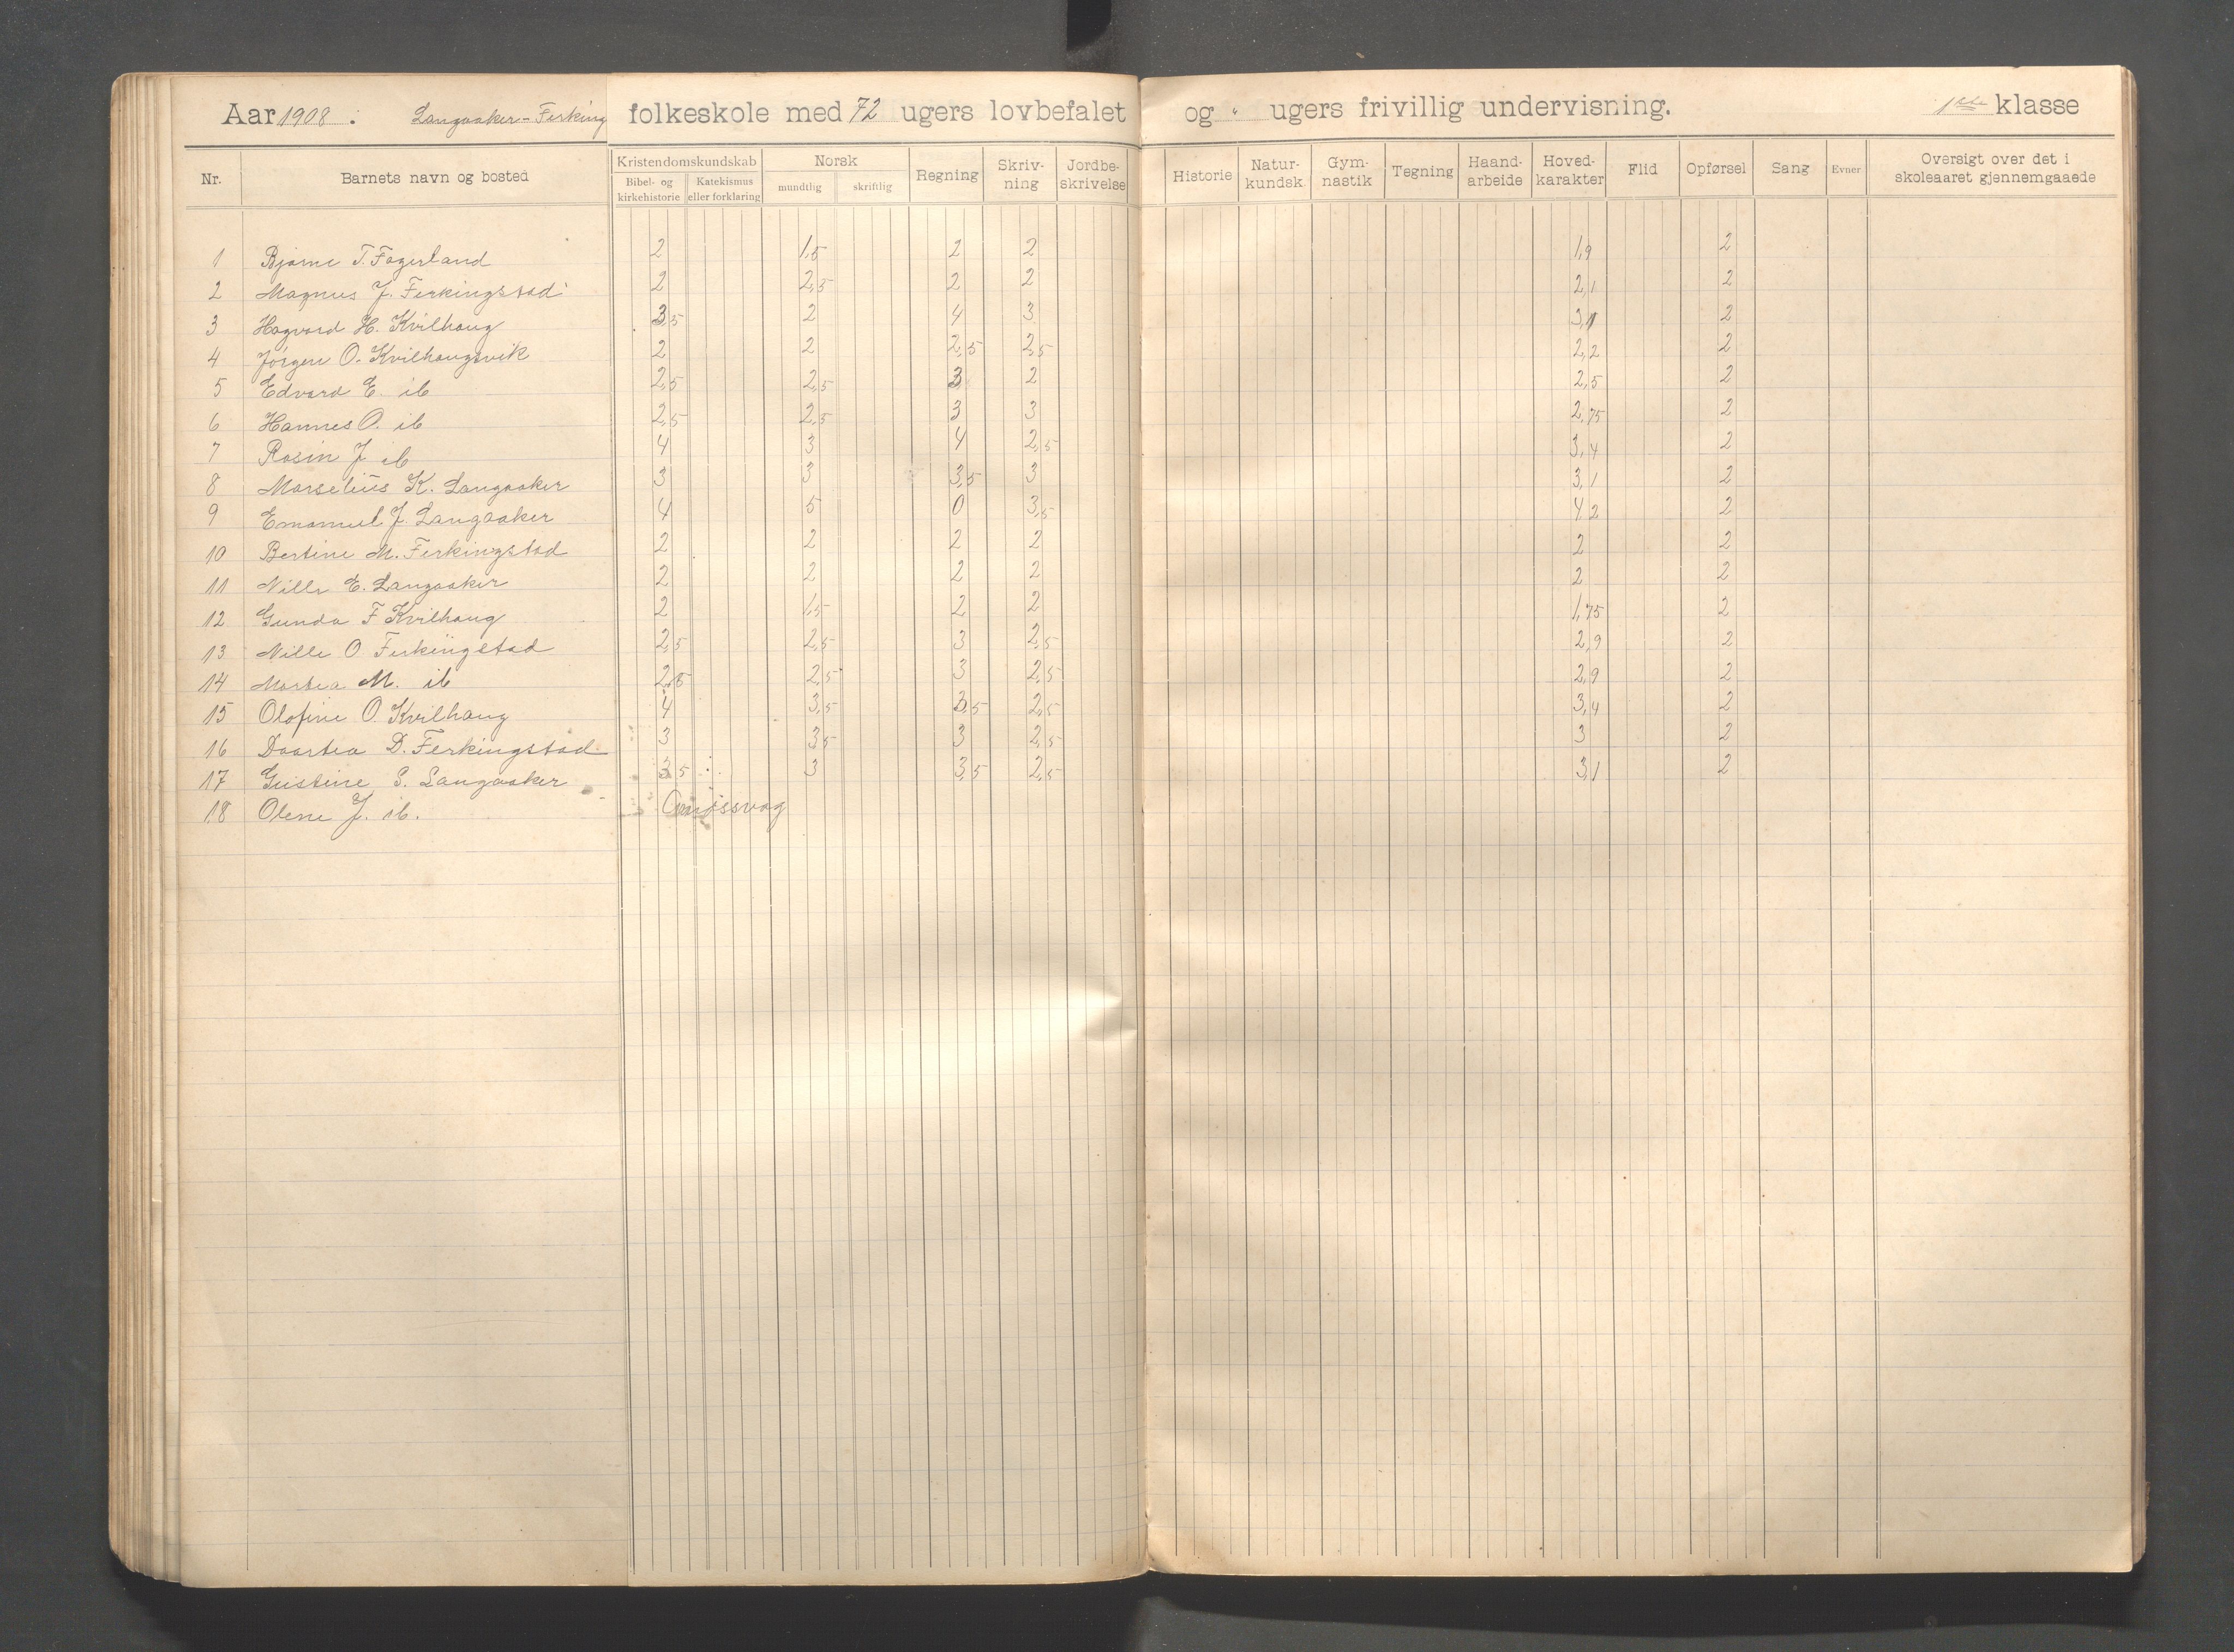 Aar 1908. Langaaker-Ferking folkeskole med 72 ugers lovbefalet og " ugers frivillig undervisning. 1ste klasse
Nr. Barnets navn og bosted Kristendomskundskab Bibel- og kirkehistorie Katekismus eller forklaring Norsk mundtlig skriftlig Regning Skriv-ning Jordbe-skrivelse Historie Natur-kundsk. Gym-nastik Tegning Haand-arbeide Hoved-karakter Flid Opførsel Sang Evner Oversigt over det i skoleaaret gjennemgaaede
1 Bjarne T. Fagerland 2 1,5 2 2 1,9 2
2 Magnus J. Ferkingstad 2 2,5 2 2 2,1 2
3 Hagvard H. Kvilhaug 3,5 2 4 3 3,1 2
4 Jörgen O. Kvilhaugsvik 2 2 2,5 2,5 2,2 2
5 Edvard E. ib 2,5 2,5 3 2 2,5 2
6 Hannes O. ib 2,5 2,5 3 3 2,75 2
7 Rasin J ib 4 3 4 2,5 3,4 2
8 Marselius K. Langaaker 3 3 3,5 3 3,1 2
9 Emanuel J. Langaaker 4 5 0 3,5 4 2 2
10 Bertine M. Ferkingstad 2 2 2 2 2 2
11 Nille E. Langaaker 2 2 2 2 2 2
12 Gunda F Kvilhaug 2 1,5 2 2 1,75 2
13 Nille O Ferkingstad 2,5 2,5 3 2,5 2,9 2
14 Martea M. ib 2,5 2,5 3 2,5 2,9 2
15 Olofine O. Kvilhaug 4 3,5 3,5 2,5 3,4 2
16 Daartea D. Ferkingstad 3 3,5 3 2,5 3 2
17 Gustine S. Langaaker 3,5 3 3,5 2,5 3,1 2
18 Olene J. ib.